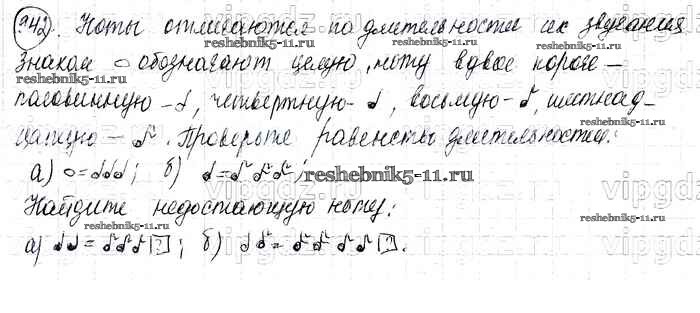 942. Ноты отличаются по длительности их звучания
Знаком 𝅝 обозначают целую, ноту вдвое короче –
половинную – 𝅗𝅥, четвертную – ♩, восьмую – ♪, шестнад-
цатую – 𝅘𝅥𝅯. Проверьте равенство длительностей:
а) 𝅝 = ; б)
Найдите недостающую ноту:
а) = [?]; б) = [?].
reshebnik5-11.ru
reshebnik5-11.ru
reshebnik5-11.ru
reshebnik5-11.ru
reshebnik5-11.ru
vipgdz.ru